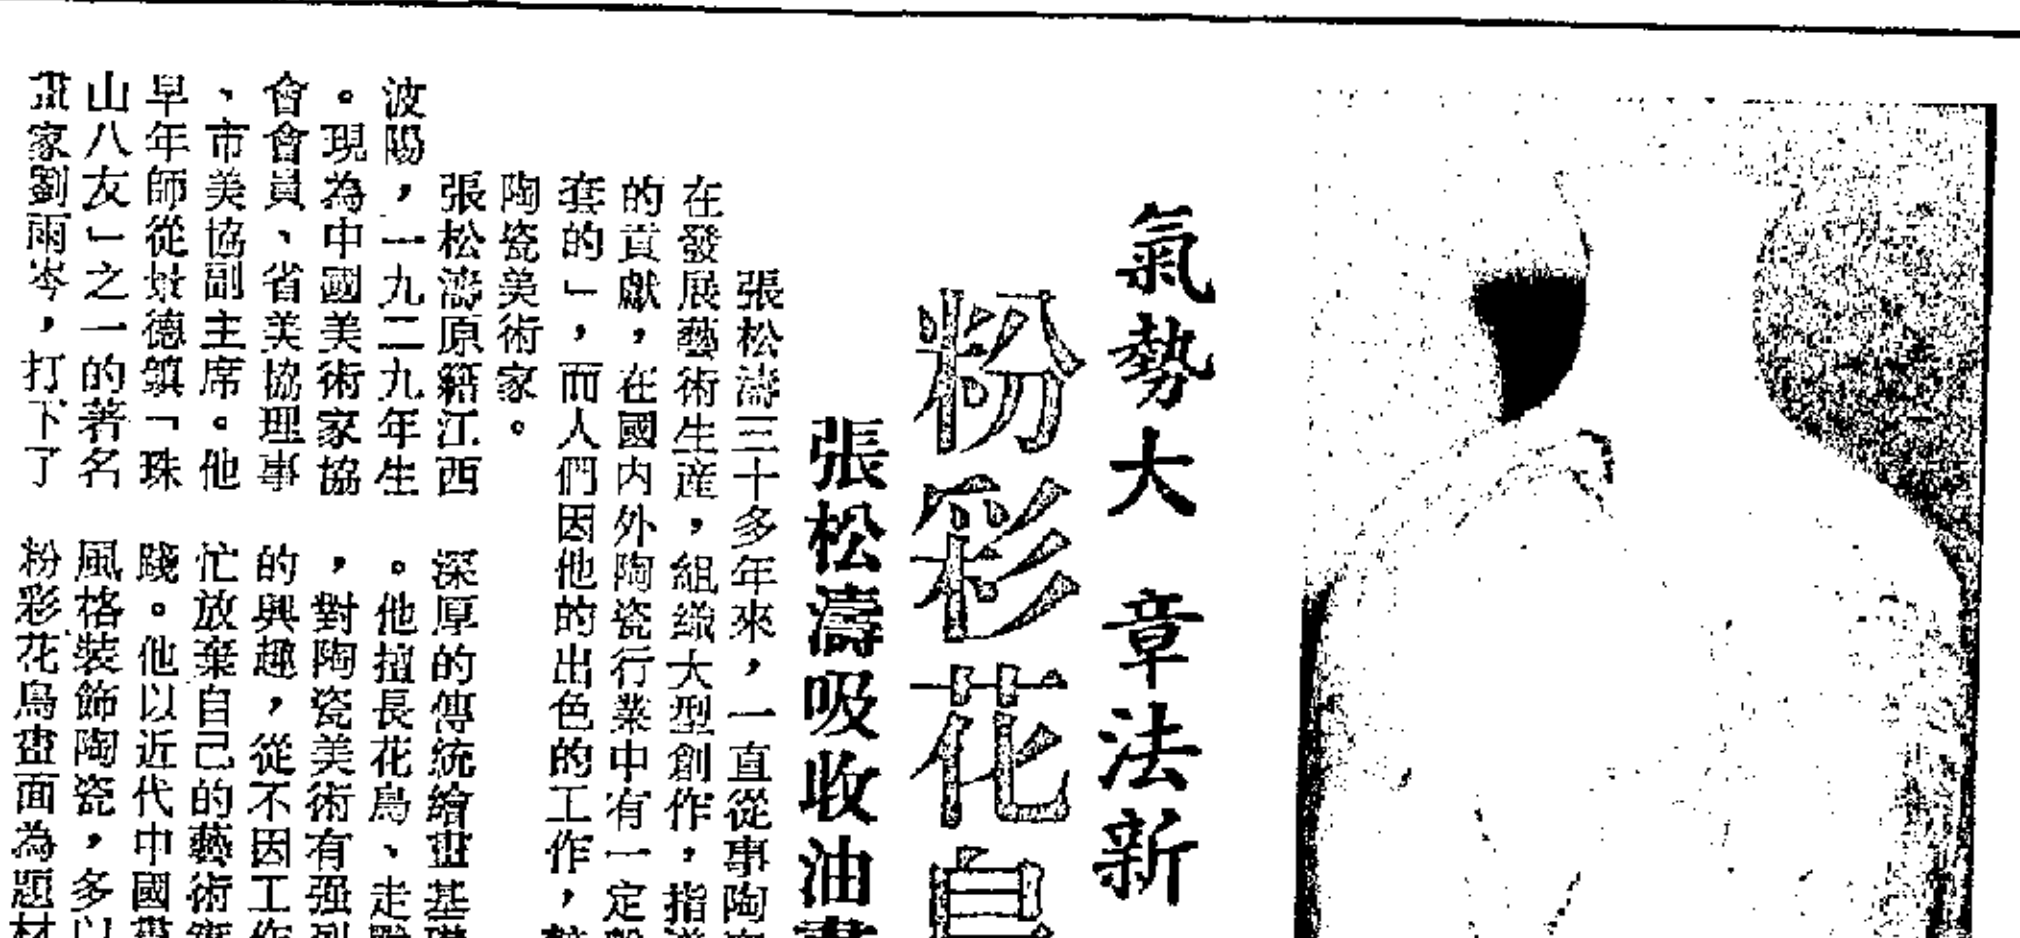 氣勢大 章法新
粉彩花
張松濤吸收油
張松濤三十多年來，一直從事陶
在發展藝術生産，組織大型創作，指
的貢獻，在國内外陶瓷行業中有一定
套的」，而人們因他的出色的工作，
陶瓷美術家。
張松濤原籍江西
波陽，一九二九年生
。現為中國美術家協
會會員、省美協理事
、市美協副主席。他
早年師從景德鎮「珠
山八友」之一的著名
畫家劉雨岑，打下了
深厚的傳統繪畫基
。他擅長花鳥、走
，對陶瓷美術有强烈
的興趣，從不因工作
忙放棄自己的藝術
踐。他以近代中國
風格裝飾陶瓷，多以
粉彩花鳥畫面為題材